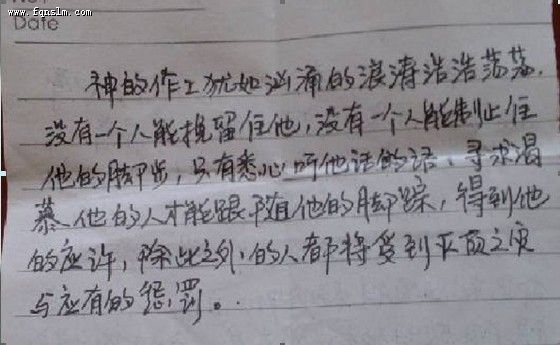 www.fgnslm.com
Date
神的作工犹如汹涌的浪涛浩浩荡荡,
没有一个人能挽留住他,没有一个人能制止住
他的脚步,只有悉心听他话的话、寻求渴
慕他的人才能跟随他的脚踪,得到他
的应许,除此之外,的人都将受到灭顶之灾
与应有的惩罚。